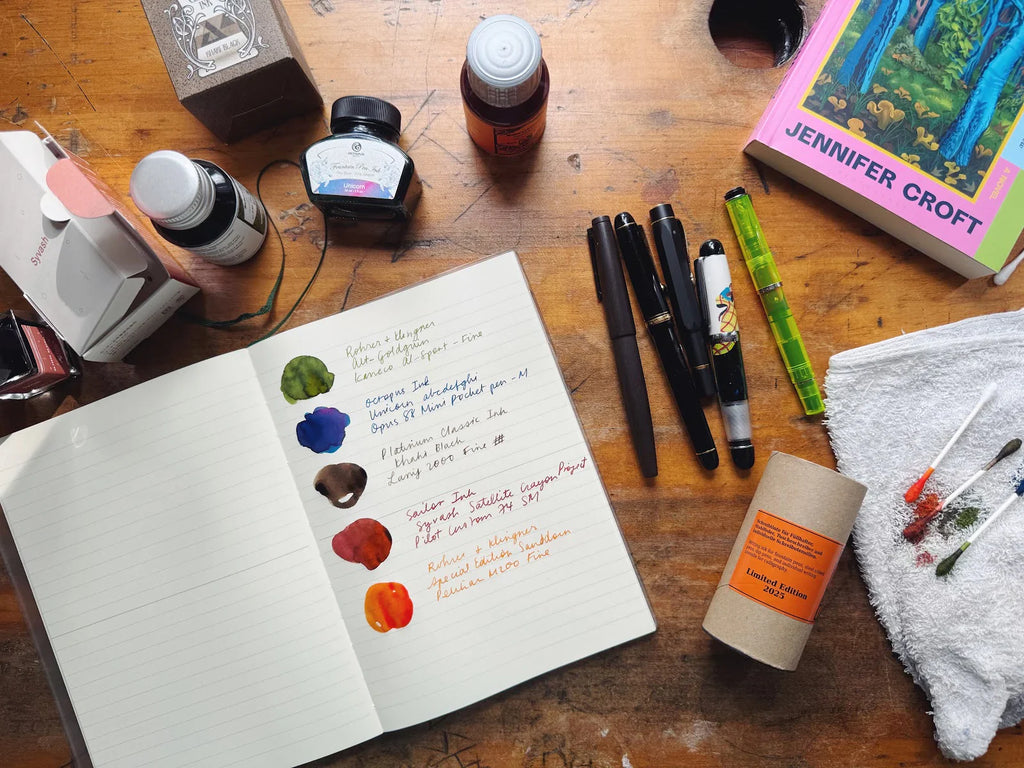 INK
KHAKI BLACK
Syvash
Fountain Pen Ink
Unicorn
JENNIFER CROFT
A NOVEL
Rohrer + Klingner
Alt-Goldgrün
Kaweco Al-Sport - Fine
Octopus Ink
Unicorn abcdefghi
Opus 88 Mini Pocket pen - M
Platinum Classic Ink
Khaki Black
Lamy 2000 Fine #
Sailor Ink
Syvash Satellite Crayon Project
Pilot Custom 74 SM
Rohrer + Klingner
Special Edition Sanddorn
Pelikan M200 Fine
Schreibtinte für Füllhalter,
Limited Edition
2025